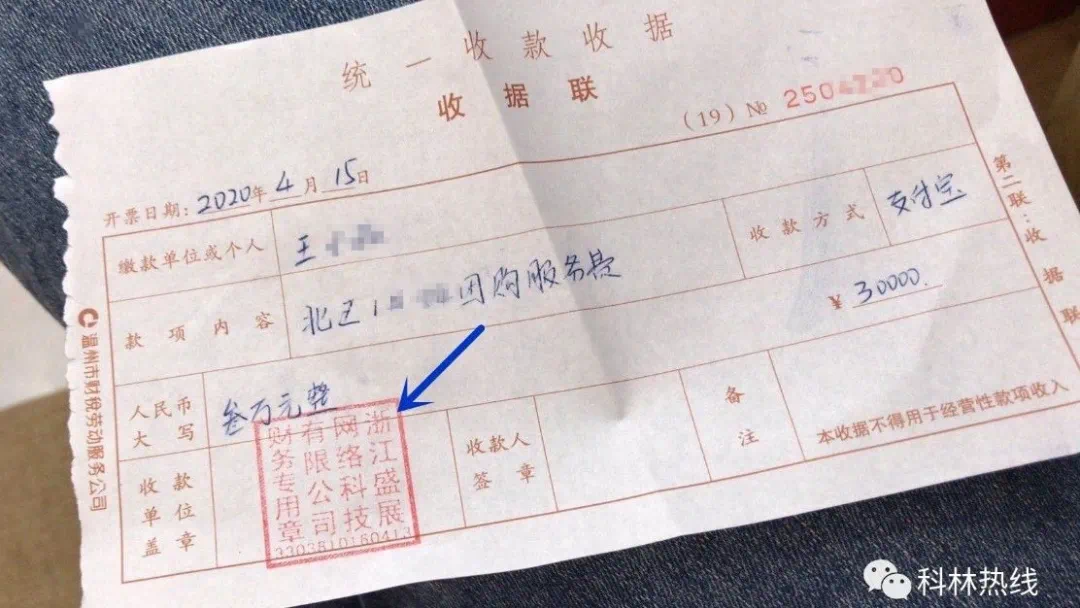 统一收款收据
收据联
(19) № 250
开票日期: 2020年 4月 15日
缴款单位或个人 王
收款方式 支付宝
款项内容 北 团购服务费
¥ 30000.
人民币大写 叁万元整
收款单位盖章
收款人签章
备注
本收据不得用于经营性款项收入
浙江盛展
网络科技
有限公司
财务专用章
第二联:收据联
温州市财税劳动服务公司
科林热线